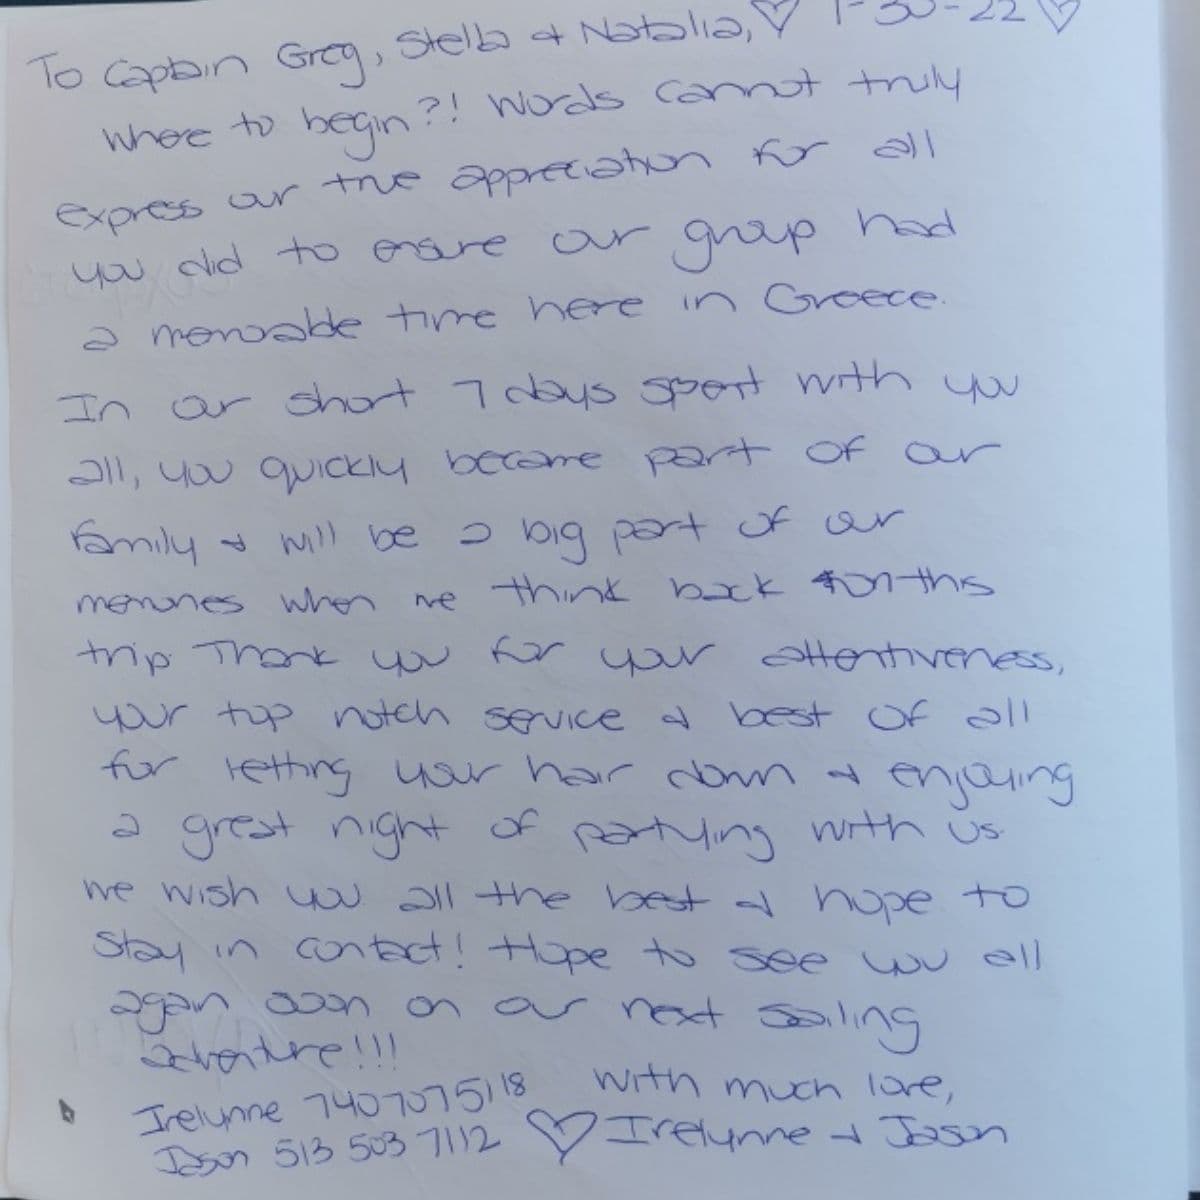 To Captain Greg, Stella & Natalia, ♡ 1-30-22 ♡
Where to begin?! Words cannot truly
express our true appreciation for all
you did to ensure our group had
a memorable time here in Greece.
In our short 7 days spent with you
all, you quickly became part of our
family & will be a big part of our
memories when we think back on this
trip. Thank you for your attentiveness,
your top notch service & best of all
for letting your hair down & enjoying
a great night of partying with us.
We wish you all the best & hope to
stay in contact! Hope to see you all
again soon on our next sailing
adventure!!!
With much love,
Irelynne 7407075118
♡ Irelynne & Jason
Jason 513 503 7112